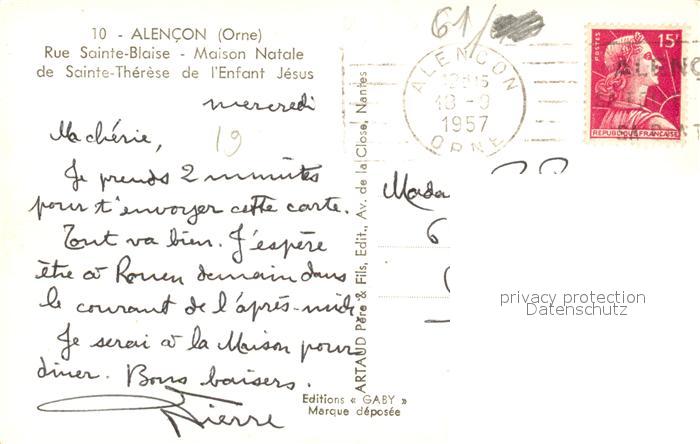 10 - ALENÇON (Orne)
Rue Sainte-Blaise - Maison Natale
de Sainte-Thérèse de l'Enfant Jésus
mercredi
Ma chérie,
19
Je prends 2 minutes
pour t'envoyer cette carte.
Tout va bien. J'espère
être à Rouen demain dans
le courant de l'après-midi.
Je serai à la Maison pour
diner. Bons baisers.
Pierre
ARTAUD Père & Fils, Edit., Av. de la Close, Nantes
Editions « GABY »
Marque déposée
61/
ALENÇON
1957
ORNE
POSTES
15F
ALENÇ
REPUBLIQUE FRANÇAISE
Mada
6
privacy protection
Datenschutz